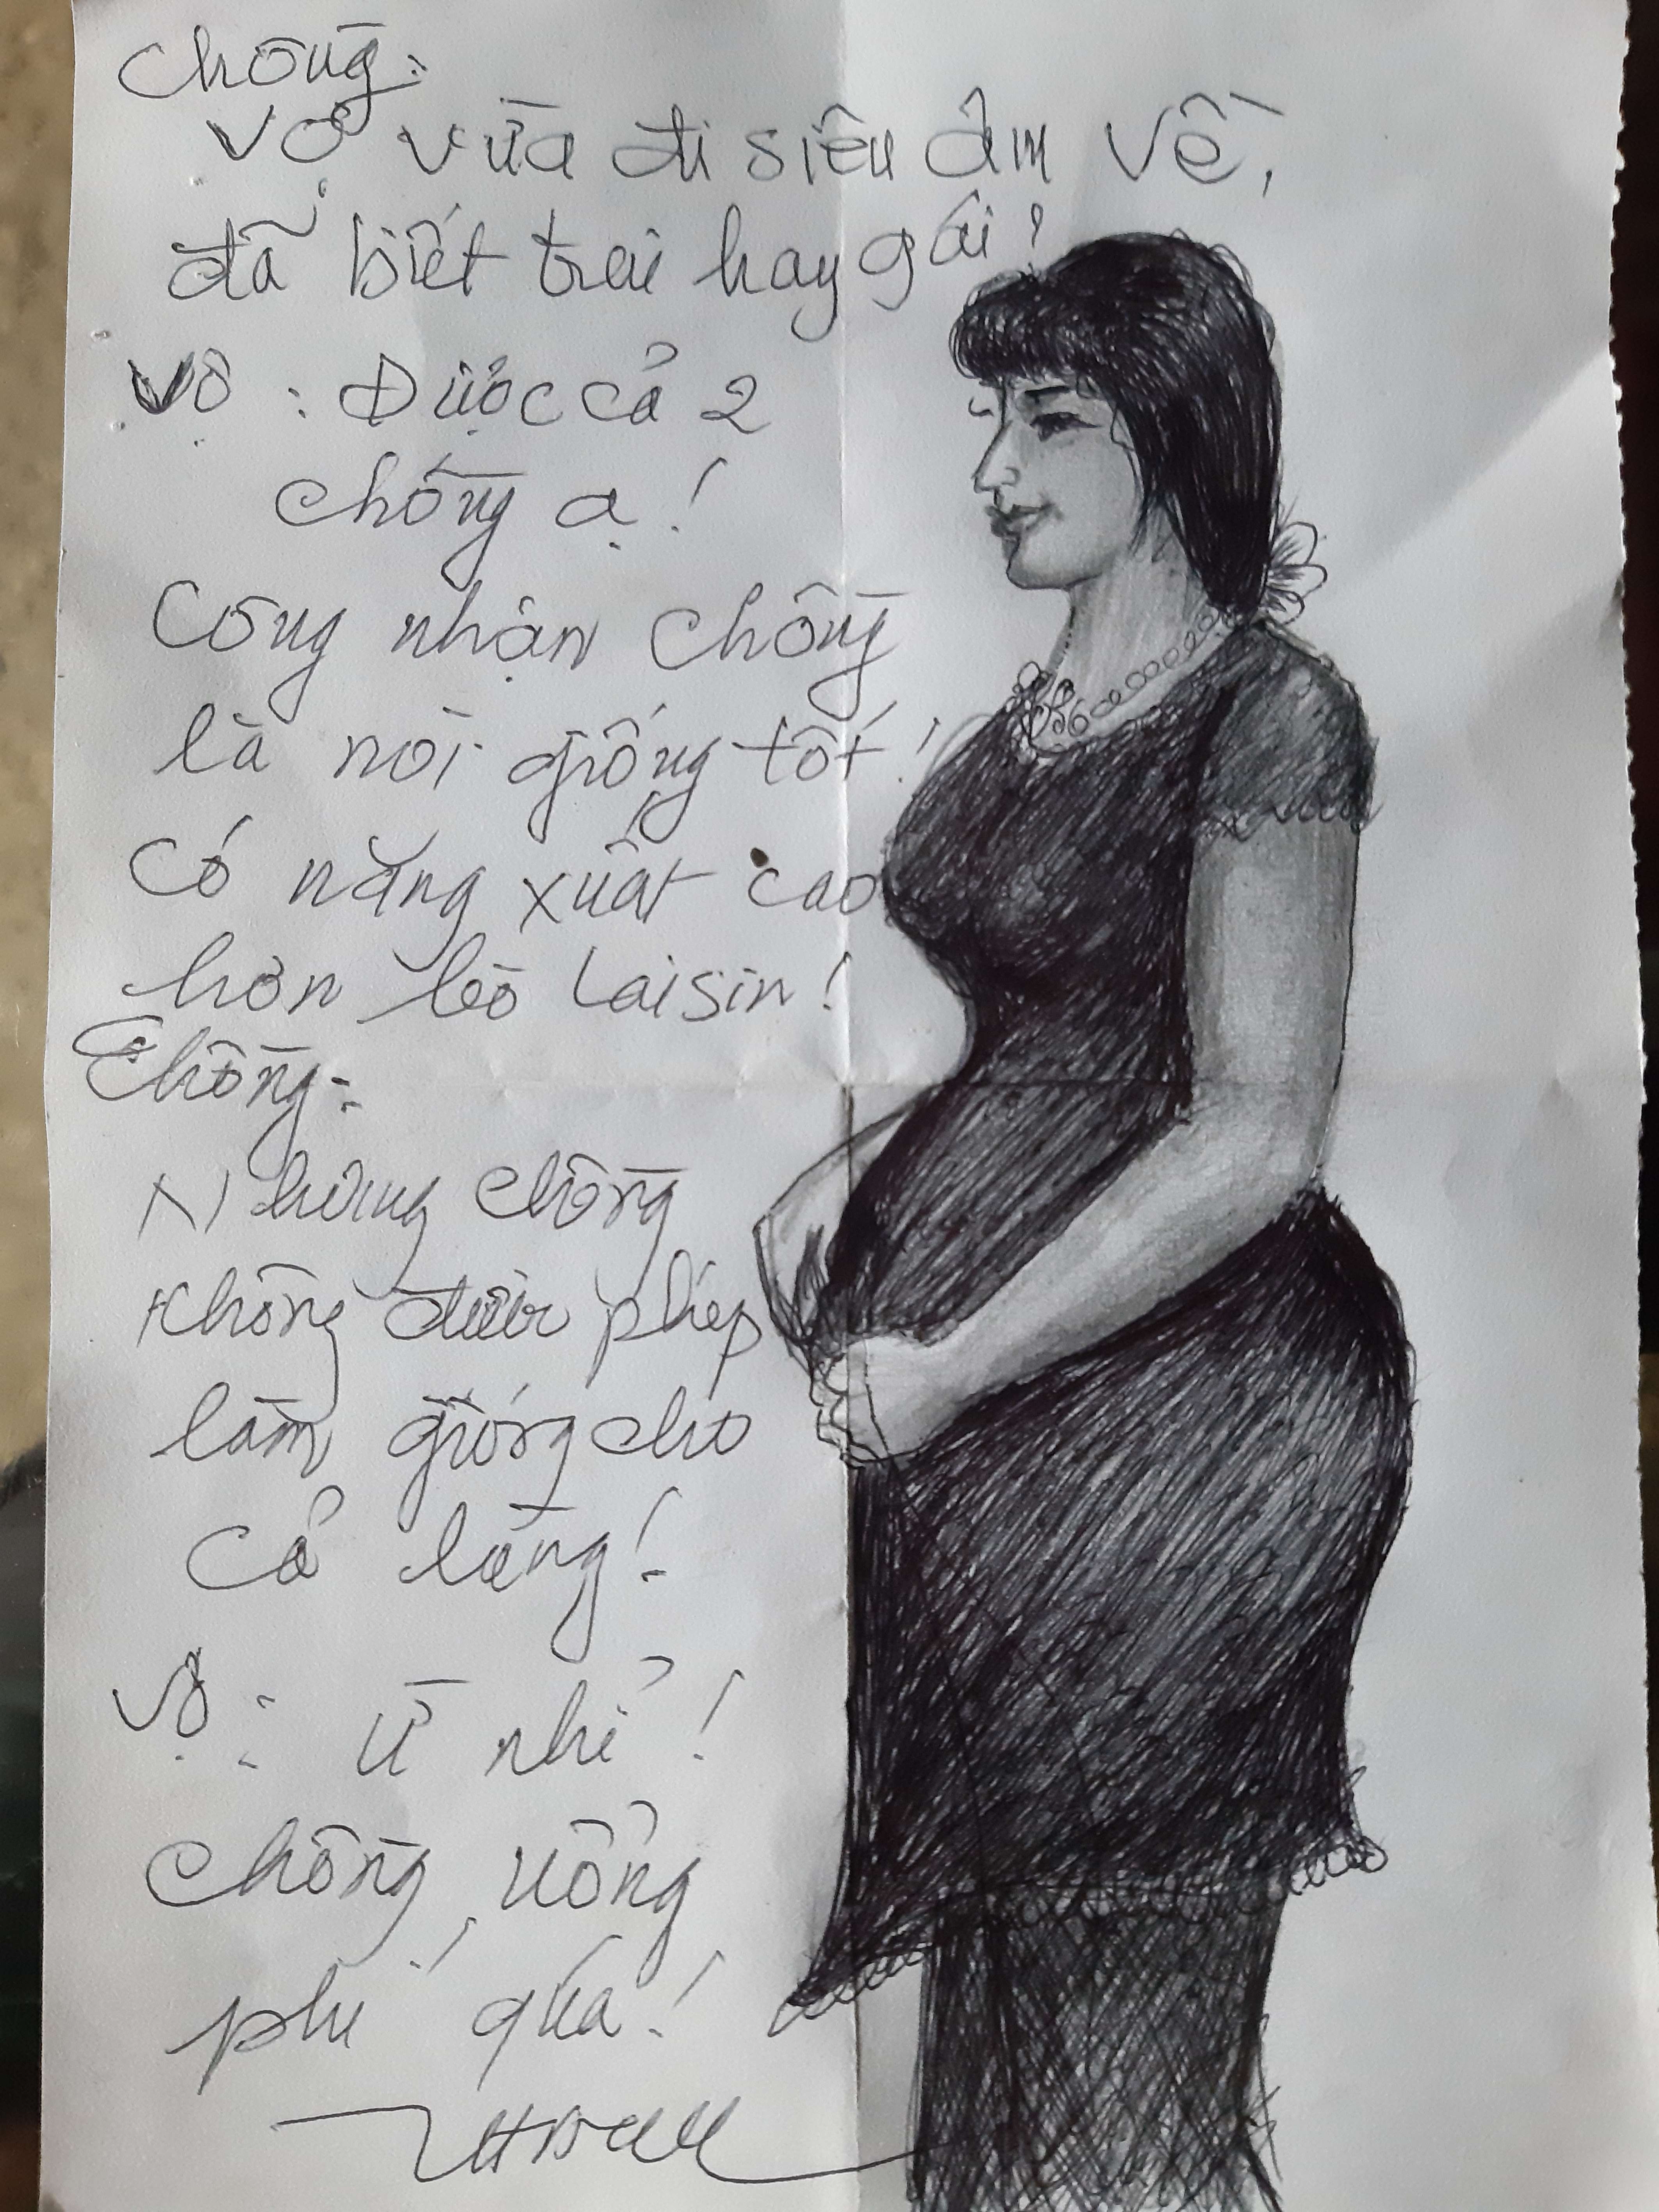 Chồng:
Vợ vừa đi siêu âm về,
đã biết trai hay gái?
Vợ : Được cả 2
chồng ạ!
Công nhận chồng
là nòi giống tốt!
Có năng xuất cao
hơn bò Laisin!
Chồng:
Nhưng chồng
không được phép
làm giống cho
cả làng!
Vợ: Ừ nhỉ!
chồng, uổng
phí quá!